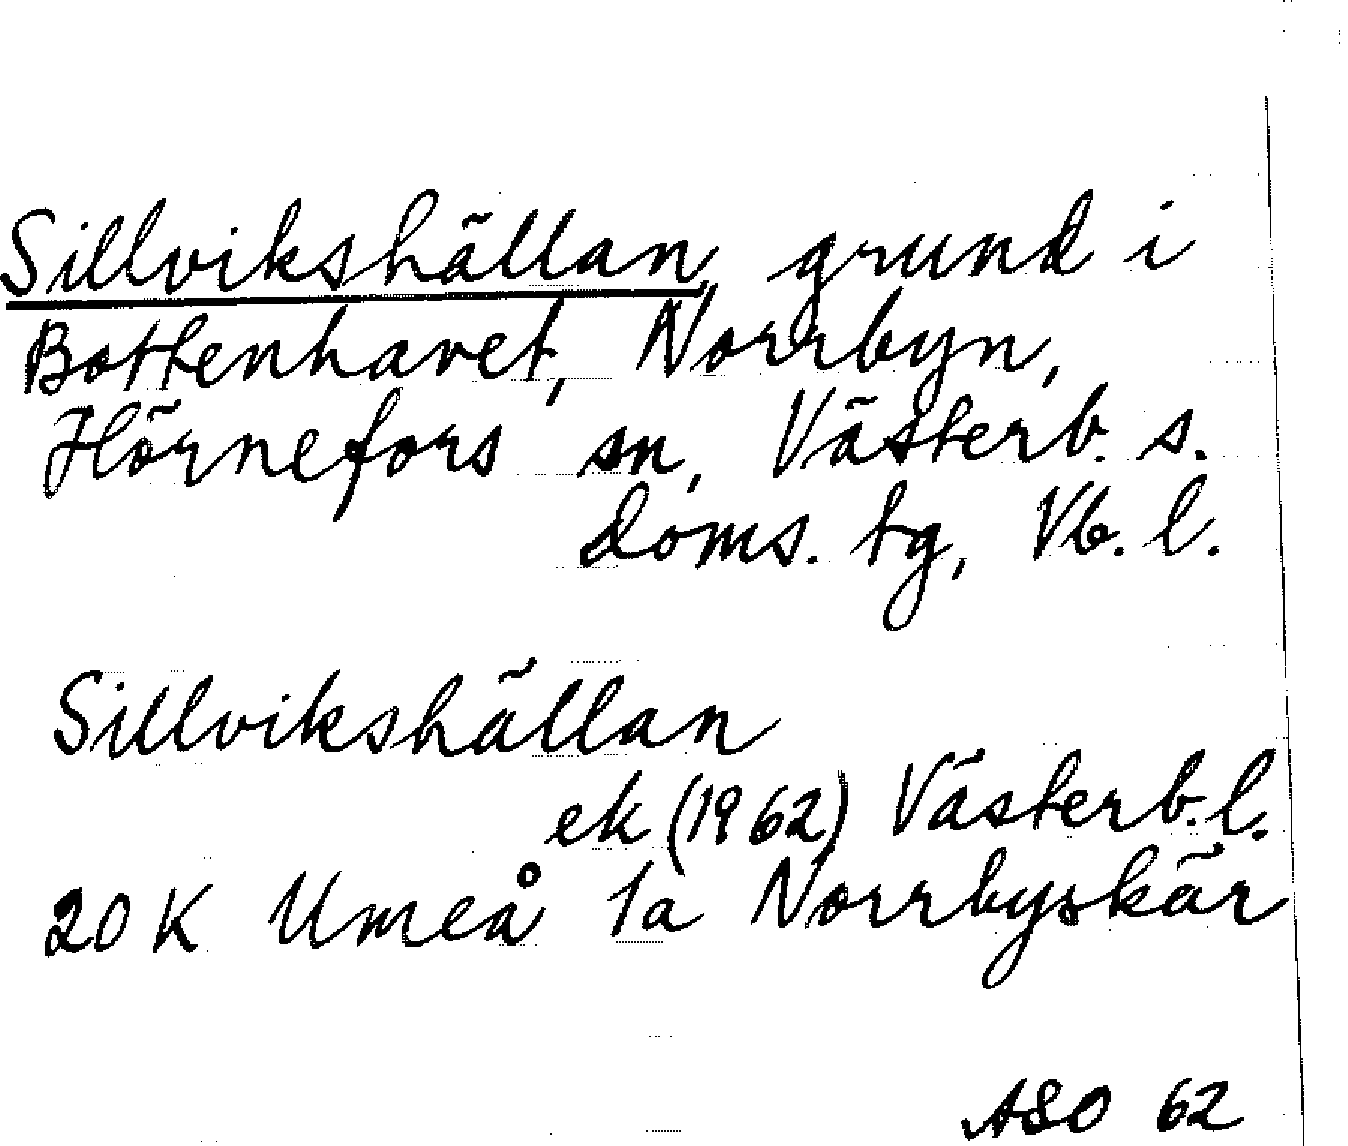 Sillvikshällan, grund i
Bottenhavet, Norrbyn,
Hörnefors sn, Västerb. s.
doms. tg, Vb. l.
Sillvikshällan
ek (1962) Västerb. l.
20K Umeå 1a Norrbyskär
ASO 62